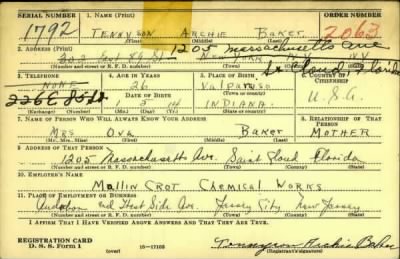 SERIAL NUMBER 1. NAME (Print) ORDER NUMBER
1792 TENNYSON ARCHIE BAKER 2063
(First) (Middle) (Last)
2. ADDRESS (Print) 1205 Massachusetts Ave
NEW YORK N.Y.
(Number and street or R. F. D. number) (Town) (County) (State)
St Cloud Florida
3. TELEPHONE 4. AGE IN YEARS 5. PLACE OF BIRTH 6. COUNTRY OF CITIZENSHIP
NONE 26 Valparaso
226 E 85 St DATE OF BIRTH INDIANA U.S.A.
(Exchange) (Number) (Mo.) (Day) (Yr.) (State or country)
7. NAME OF PERSON WHO WILL ALWAYS KNOW YOUR ADDRESS 8. RELATIONSHIP OF THAT PERSON
MRS Ova BAKER MOTHER
(Mr., Mrs., Miss) (First) (Middle) (Last)
9. ADDRESS OF THAT PERSON
1205 Massachusetts Ave. Saint Cloud Florida
(Number and street or R. F. D. number) (Town) (County) (State)
10. EMPLOYER'S NAME
Mallin Crot Chemical Works
11. PLACE OF EMPLOYMENT OR BUSINESS
and West Side Ave Jersey City New Jersey
(Number and street or R. F. D. number) (Town) (County) (State)
I AFFIRM THAT I HAVE VERIFIED ABOVE ANSWERS AND THAT THEY ARE TRUE.
REGISTRATION CARD
D. S. S. Form 1 (over) 16—17105 Tennyson Archie Baker
(Registrant's signature)